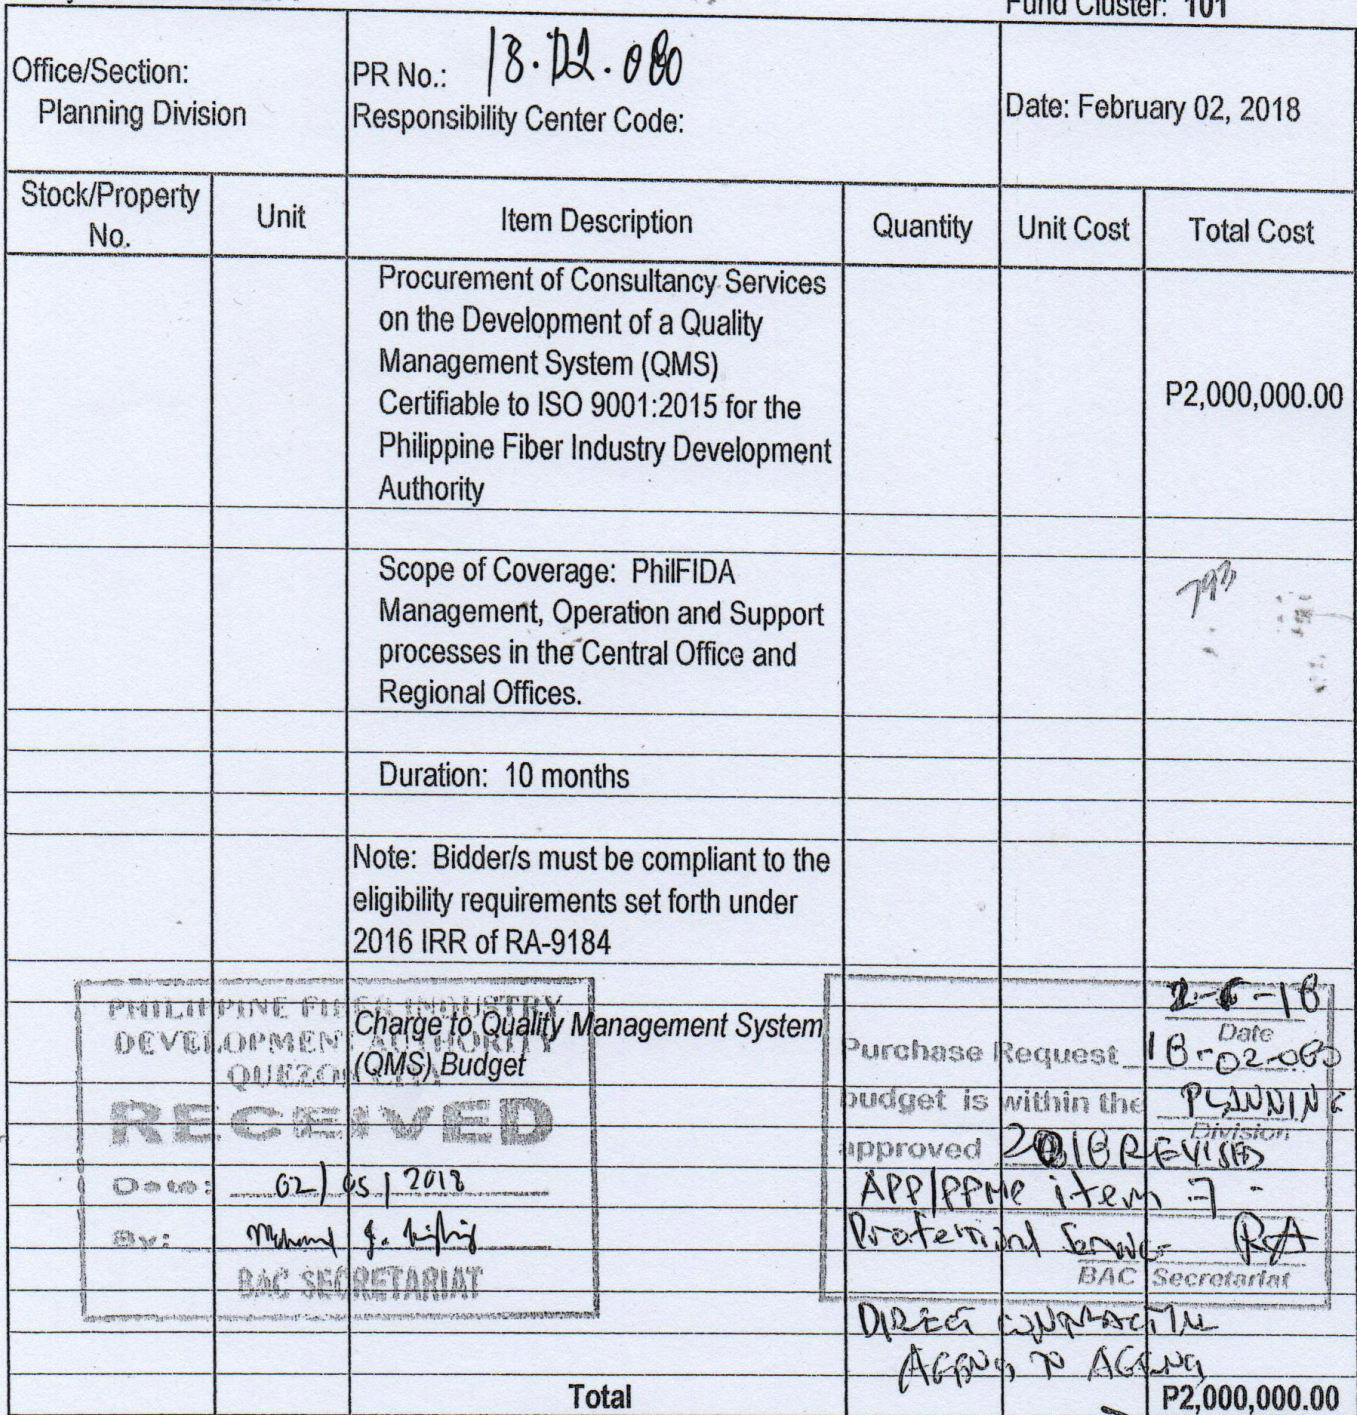 Fund Cluster: 101
Office/Section:
Planning Division
PR No.: 18.02.080
Responsibility Center Code:
Date: February 02, 2018
Stock/Property No.
Unit
Item Description
Quantity
Unit Cost
Total Cost
Procurement of Consultancy Services
on the Development of a Quality
Management System (QMS)
Certifiable to ISO 9001:2015 for the
Philippine Fiber Industry Development
Authority
P2,000,000.00
Scope of Coverage: PhilFIDA
Management, Operation and Support
processes in the Central Office and
Regional Offices.
Duration: 10 months
Note: Bidder/s must be compliant to the
eligibility requirements set forth under
2016 IRR of RA-9184
Charge to Quality Management System
(QMS) Budget
PHILIPPINE FIBER INDUSTRY
DEVELOPMENT AUTHORITY
QUEZON CITY
RECEIVED
Date: 02/05/2018
By:
BAC SECRETARIAT
Date
Purchase Request 18-02-080
budget is within the PLANNING
Division
approved 2018 REVISED
APP/PPMP item 7 -
Professional Service RA
BAC Secretariat
DIRECT CONTRACTING
AGENCY TO AGENCY
Total
P2,000,000.00